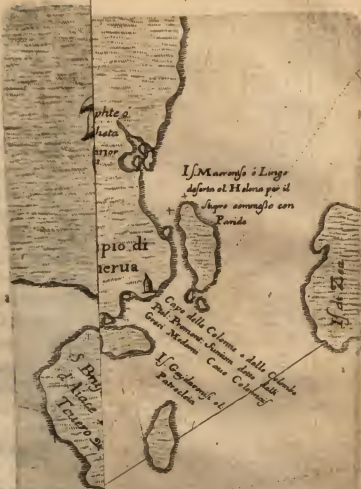 phte ó
heta
rior
If. Macroniso ó Lingo
deserta et Helena per il
Stupro commesso con
Paride
pio di
erua
Capo delle Colonne o dalle Colombe
Prul. Promont. Sunium detto dalli
Greci Moderni Cauo Colonnis
If. Gaydaronisa et
Patrocleia
If. di Zea
S. Bru
d'Aiace
Teucro